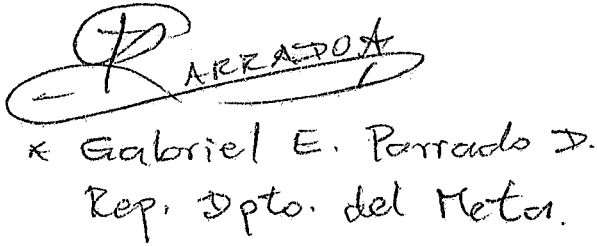 PARRADO A
* Gabriel E. Parrado D.
Rep. Dpto. del Meta.